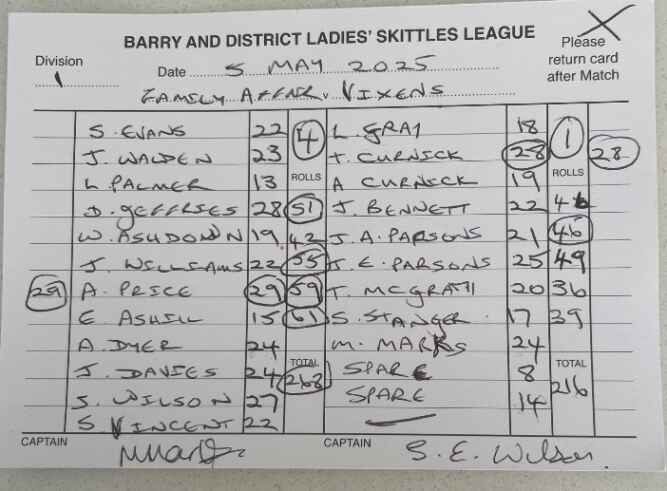 BARRY AND DISTRICT LADIES' SKITTLES LEAGUE
Division
1
Date 5 MAY 2025
Please
return card
after Match
FAMILY AFFAIR v VIXENS
S. EVANS 22 4 L. GRAY 18 1
J. WALDEN 23 T. CURNICK 28 28
L. PALMER 13 ROLLS A CURNICK 19 ROLLS
D. JEFFRIES 28 51 J. BENNETT 22 46
W. ASHDOWN 19 42 J. A. PARSONS 21 46
J. WILLIAMS 22 55 J. E. PARSONS 25 49
29 A. PRICE 29 59 T. MCGRATH 20 36
E ASHILL 15 61 S. STANGER 17 39
A. DYER 24 M. MARKS 24
J. DAVIES 24 TOTAL 268 SPARE 8 TOTAL 216
S. WILSON 27 SPARE 14
S VINCENT 22
CAPTAIN
CAPTAIN S. E. Wilson.